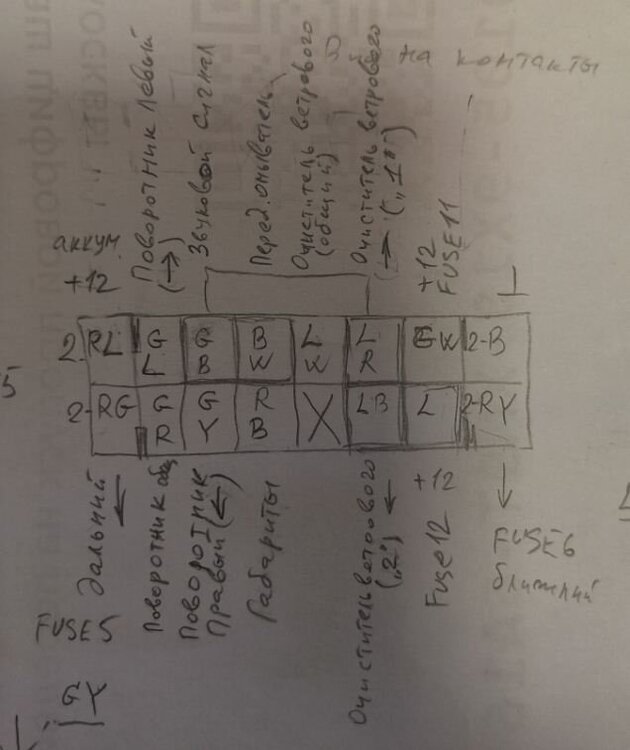 на контакты
Поворотник левый
(→)
Звуковой сигнал
Перед. омыватель
Очиститель ветрового
(общий)
Очиститель ветрового
→ ("1")
аккум.
+12
+12
FUSE11
2-RL
G
L
G
B
B
W
L
W
L
R
GW
2-B
5
2-RG
G
R
G
Y
R
B
X
LB
L
2-RY
Дальний
←
FUSE5
Поворотник общ
Поворотник
Правый (←)
Габариты
Очиститель ветрового ←
("2")
+12
Fuse12
FUSE6
ближний
GY